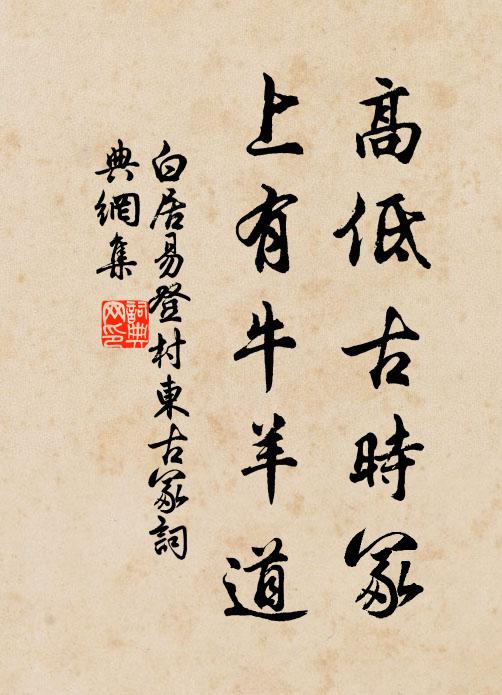 高低古時冢
上有牛羊道
白居易登村東古冢詞
典網集
詞典
网印